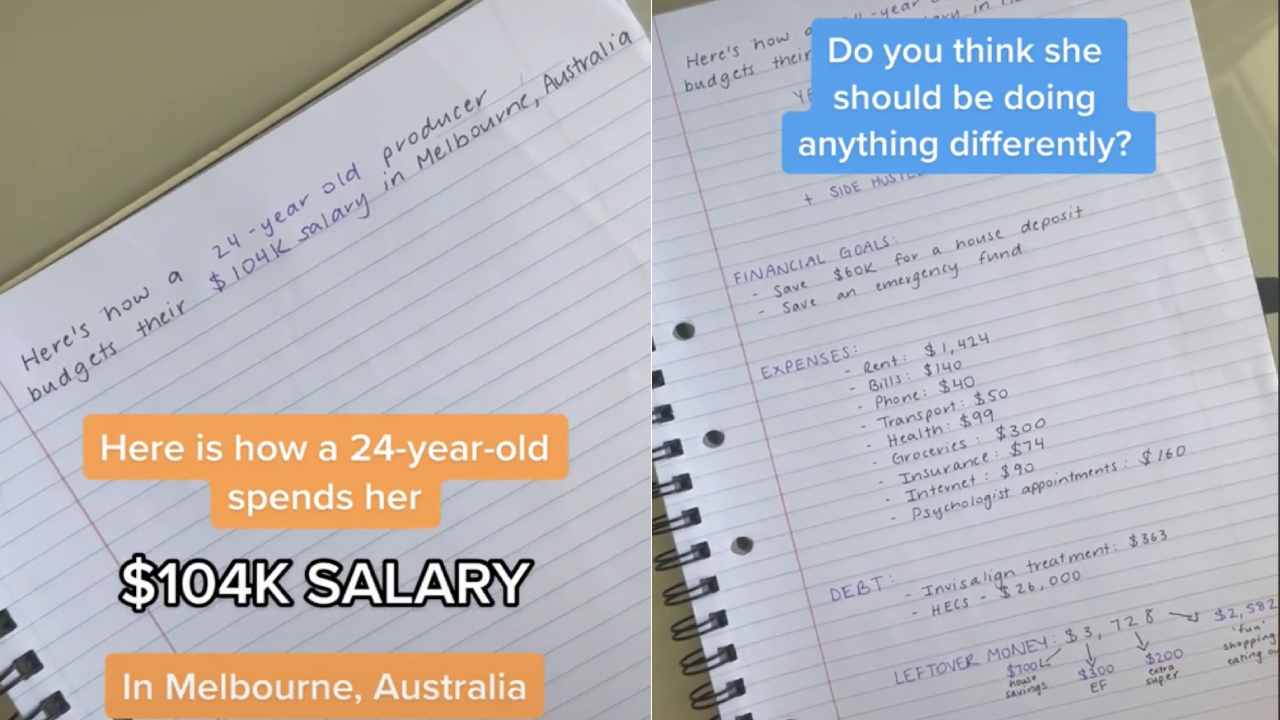 Here's how a 24-year old producer
budgets their $104K salary in Melbourne, Australia
Here is how a 24-year-old
spends her
$104K SALARY
In Melbourne, Australia
Here's how a
budgets their
Do you think she
should be doing
anything differently?
+ SIDE HUSTLE
FINANCIAL GOALS:
- Save $60K for a house deposit
- Save an emergency fund
EXPENSES:
- Rent: $1,424
- Bills: $140
- Phone: $40
- Transport: $50
- Health: $99
- Groceries: $300
- Insurance: $74
- Internet: $90
- Psychologist appointments: $160
DEBT:
- Invisalign treatment: $363
- HECS - $26,000
LEFTOVER MONEY: $3,728
$700
house
savings
$300
EF
$200
extra
super
$2,582
'fun'
shopping
eating